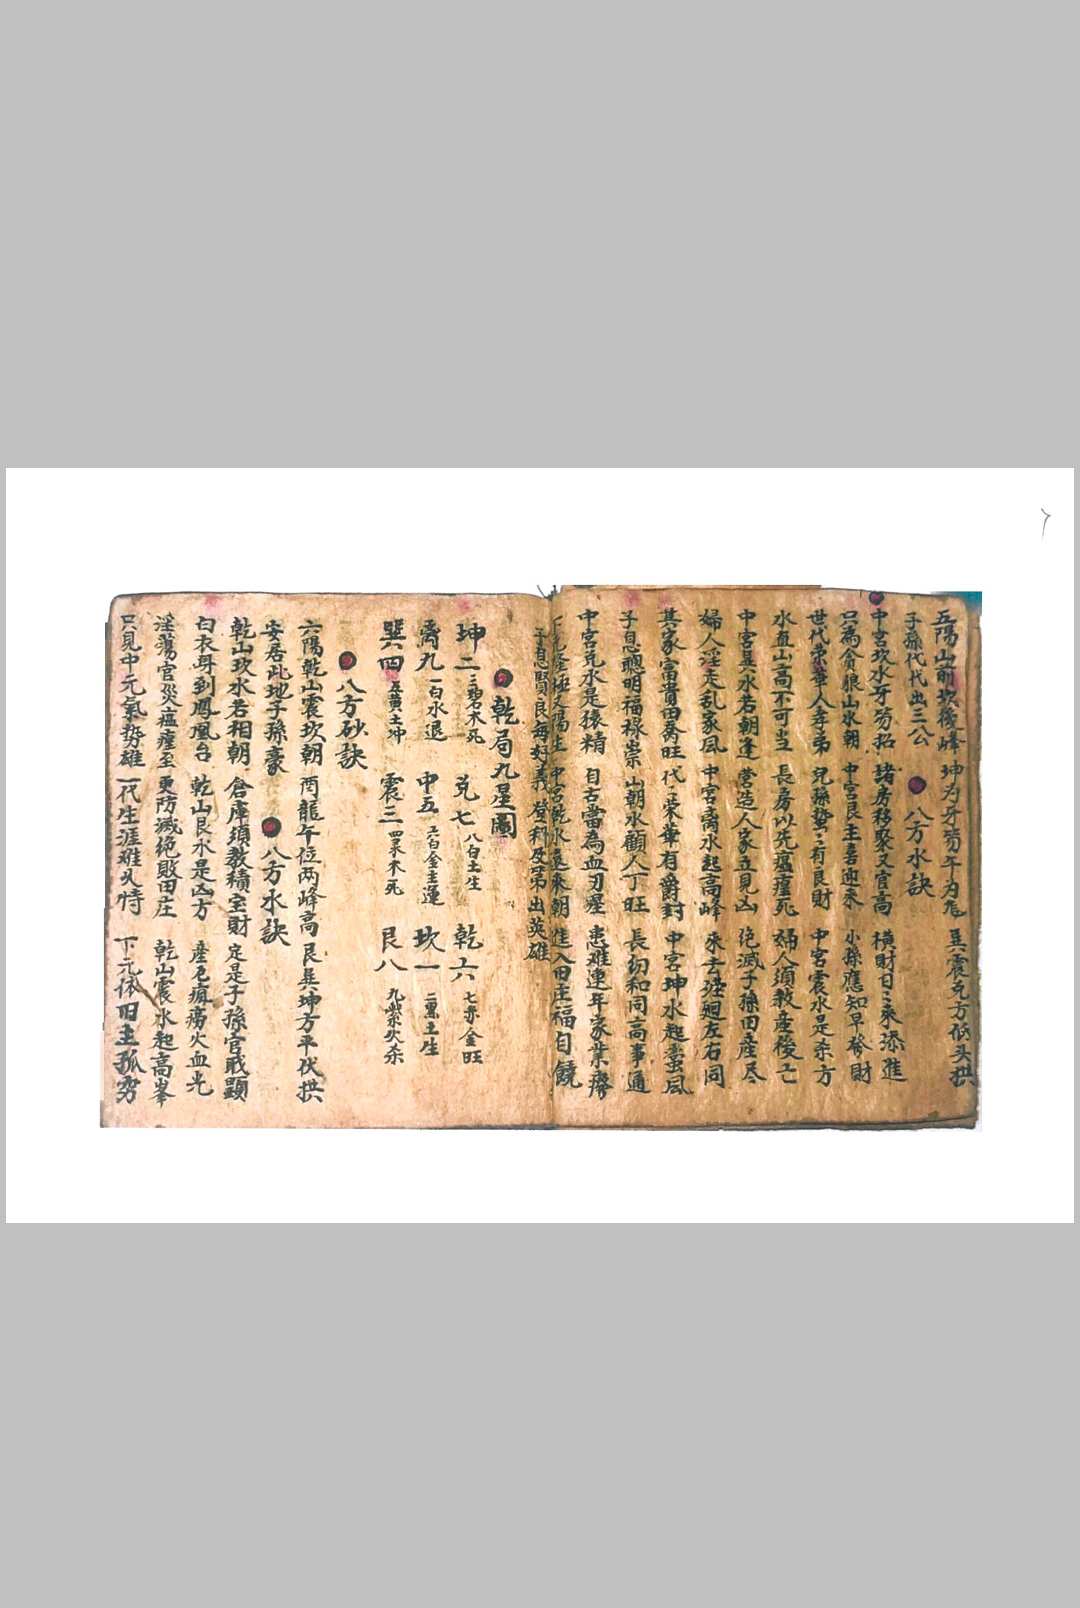 五陽山前坎後峰 坤为牙笏午为 巽震兑方低头拱
子孫代代出三公 八方水訣
中宮坎水牙笏招 諸房移聚又官高 横財日三來添進
只為貪狼山水朝 中宮艮主喜迎來 小孫應知早發財
世代榮華人孝弟 兒孫蟄三有良財 中宮震水是杀方
水直山高不可当 長房以先瘟瘟死 婦人須教產後亡
中宮巽水若朝逢 营造人家立見凶 绝滅子孫田產尽
婦人淫走乱家风 中宮离水起高峰 來去 廻左右同
其家富貴田蚕旺 代三荣華有爵封 中宮坤水起蚕凮
子息聰明福禄崇 山朝水顧人丁旺 長幼和同高事通
中宮兑水是猿精 自古當為血刃 患难連年家業
中宮乾水遠來朝 進入田庄福自饒
子息賢良每好義 登科及第出英雄
乾局九星圖
坤二三碧木死 兑七八白土生 乾六七赤金旺
离九一白水退 中五六白金主運 坎一二黑土生
巽四五黄土坤 震三四录木死 艮八九紫火杀
八方砂訣
六陽乾山震坎朝 丙龍午位两峰高 艮巽坤方平伏拱
安居此地子孫豪 八方水訣
乾山坎水若相朝 倉庫須教積宝財 定是子孫官戝顕
白衣身到鳳凰台 乾山艮水是凶方 產厄瘨癆火血光
淫蕩官災瘟瘟至 更防滅绝敗田庄 乾山震水起高峯
只見中元氣势雄 一代生涯难久恃 下元依旧主孤穷